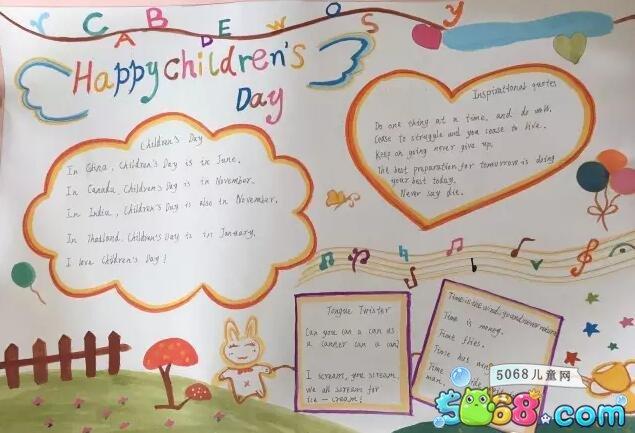 Y C A B D E W O S y
Happy children's
Day
Children's Day
In China, Children's Day is in June.
In Canada, Children's Day is in November.
In India, Children's Day is also in November.
In Thailand, Children's Day is in January.
I love Children's Day!
Inspirational quotes
Do one thing at a time, and do well.
Cease to struggle and you cease to live.
Keep on going never give up.
The best preparation for tomorrow is doing
your best today.
Never say die.
Tongue Twister
Can you can a can as
a canner can a can
I scream, you scream,
we all scream for
ice-cream!
Time is the wind, go and never return
Time is money.
Time flies.
Time
man,
5068儿童网
5068.com